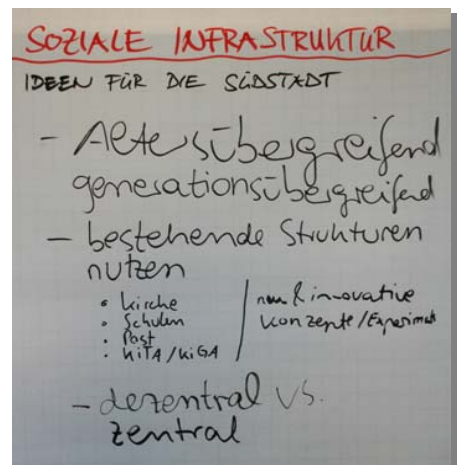 SOZIALE INFRASTRUKTUR
IDEEN FÜR DIE SÜDSTADT
- Altersübergreifend
generationsübergreifend
- bestehende Strukturen
nutzen
• Kirche
• Schulen
• Post
• KiTA / KiGA
neu & innovative
Konzepte / Experiment
- dezentral vs.
zentral